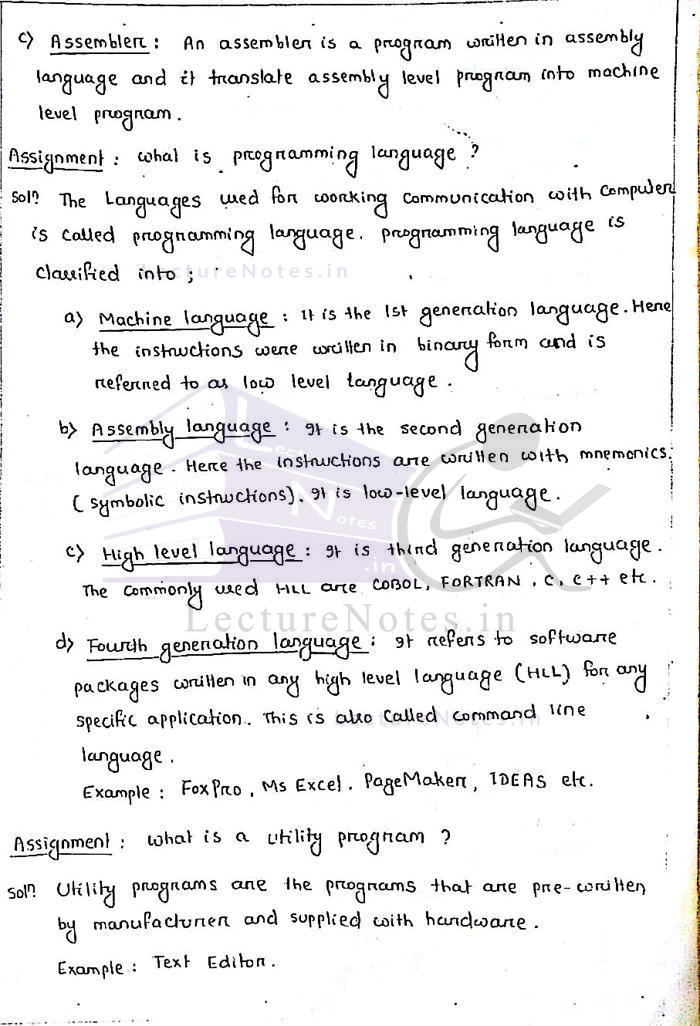 c) Assembler : An assembler is a program written in assembly
language and it translate assembly level program into machine
level program.
Assignment : what is programming language ?
Soln The Languages used for working communication with computer
is called programming language. programming language is
classified into ;
LectureNotes.in
a) Machine language : It is the 1st generation language. Here
the instructions were written in binary form and is
referred to as low level language.
b) Assembly language : It is the second generation
language. Here the instructions are written with mnemonics.
(symbolic instructions). It is low-level language.
Lecture
Notes
.in
c) High level language : It is third generation language.
The commonly used HLL are COBOL, FORTRAN, C, C++ etc.
LectureNotes.in
d) Fourth generation language : It refers to software
packages written in any high level language (HLL) for any
specific application. This is also called command line
LectureNotes.in
language.
Example : FoxPro, Ms Excel, PageMaker, IDEAS etc.
Assignment : what is a utility program ?
Soln Utility programs are the programs that are pre-written
by manufacturer and supplied with hardware.
Example : Text Editor.